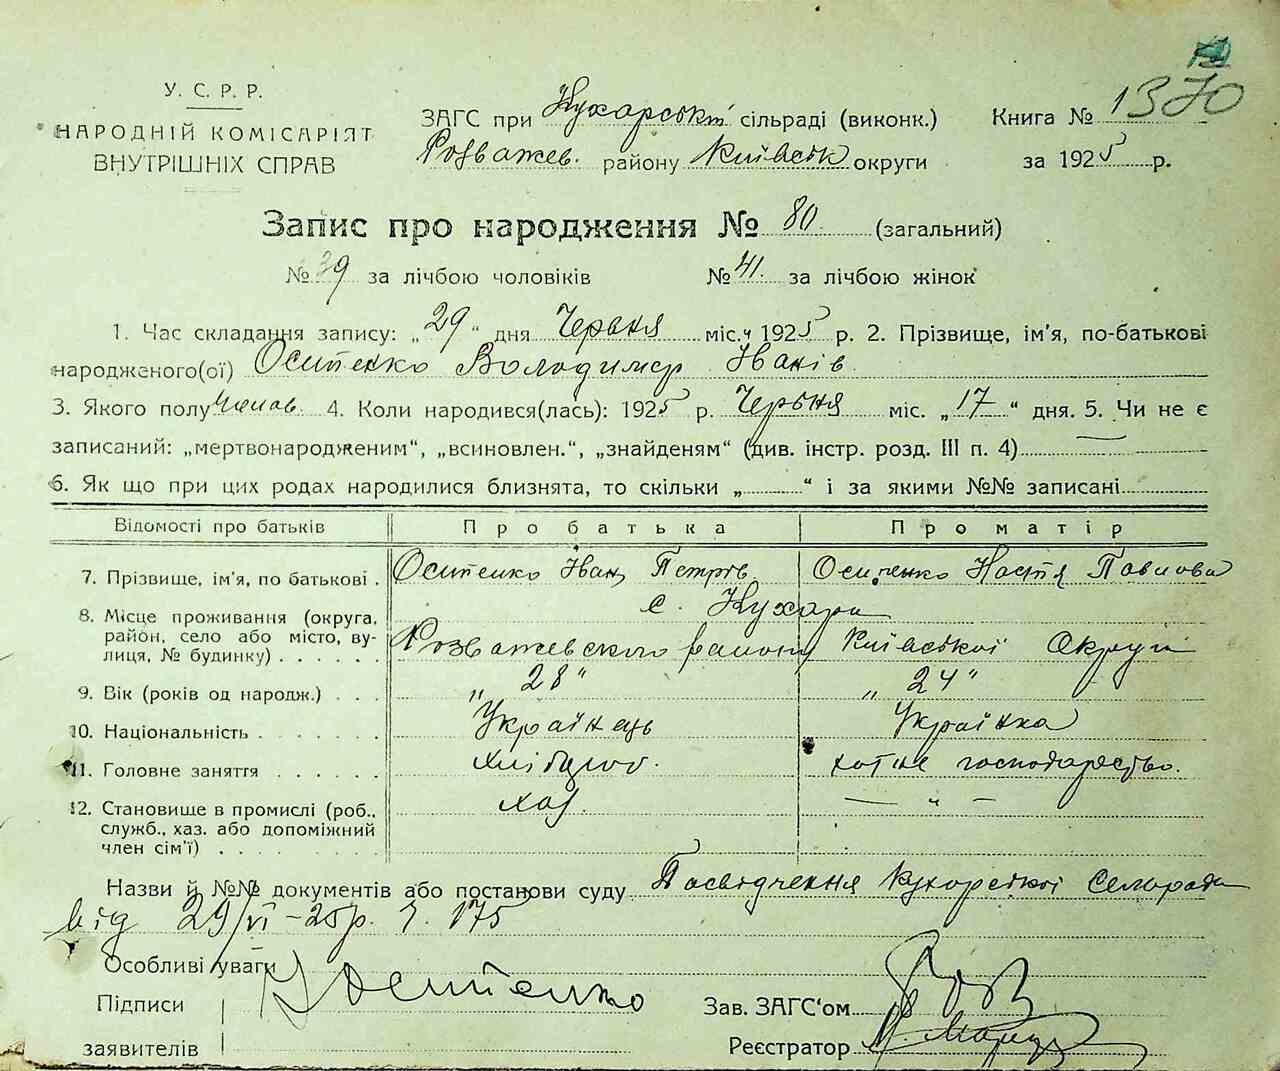 У. С. Р. Р.
НАРОДНІЙ КОМІСАРІЯТ
ВНУТРІШНІХ СПРАВ
ЗАГС при Кухарські сільраді (виконк.) Книга № 1370
Розважев. району Київськ округи за 1925 р.
Запис про народження № 80 (загальний)
№ 39 за лічбою чоловіків № 41. за лічбою жінок
1. Час складання запису: „29“ дня Червня міс. 1925 р. 2. Прізвище, ім'я, по-батькові
народженого(ої) Осипенко Володимир Іванів
3. Якого полу Чолов. 4. Коли народився(лась): 1925 р. Червня міс. „17“ дня. 5. Чи не є
записаний: „мертвонародженим“, „всиновлен.“, „знайденям“ (див. інстр. розд. III п. 4) —
6. Як що при цих родах народилися близнята, то скільки „ “ і за якими №№ записані
Відомості про батьків Про батька Про матір
7. Прізвище, ім'я, по батькові . Осипенко Іван Петрів Осипенко Настя Павлова
с. Кухари
8. Місце проживання (округа, район, село або місто, вулиця, № будинку) . . . . . . Розважевського району Київської Округи
9. Вік (років од народж.) . . . „28“ „24“
10. Національність . . . . . . . Українець Українка
11. Головне заняття . . . . . . Хлібороб. хатне господарство.
12. Становище в промислі (роб., служб., хаз. або допоміжний член сім'ї) . . . . . . . . . хаз. — „ —
Назви й №№ документів або постанови суду Посвідчення Кухарської Сельради
від 29/VI-25р. ч. 175
Особливі уваги
Підписи Осипенко Зав. ЗАГС'ом
заявителів Реєстратор